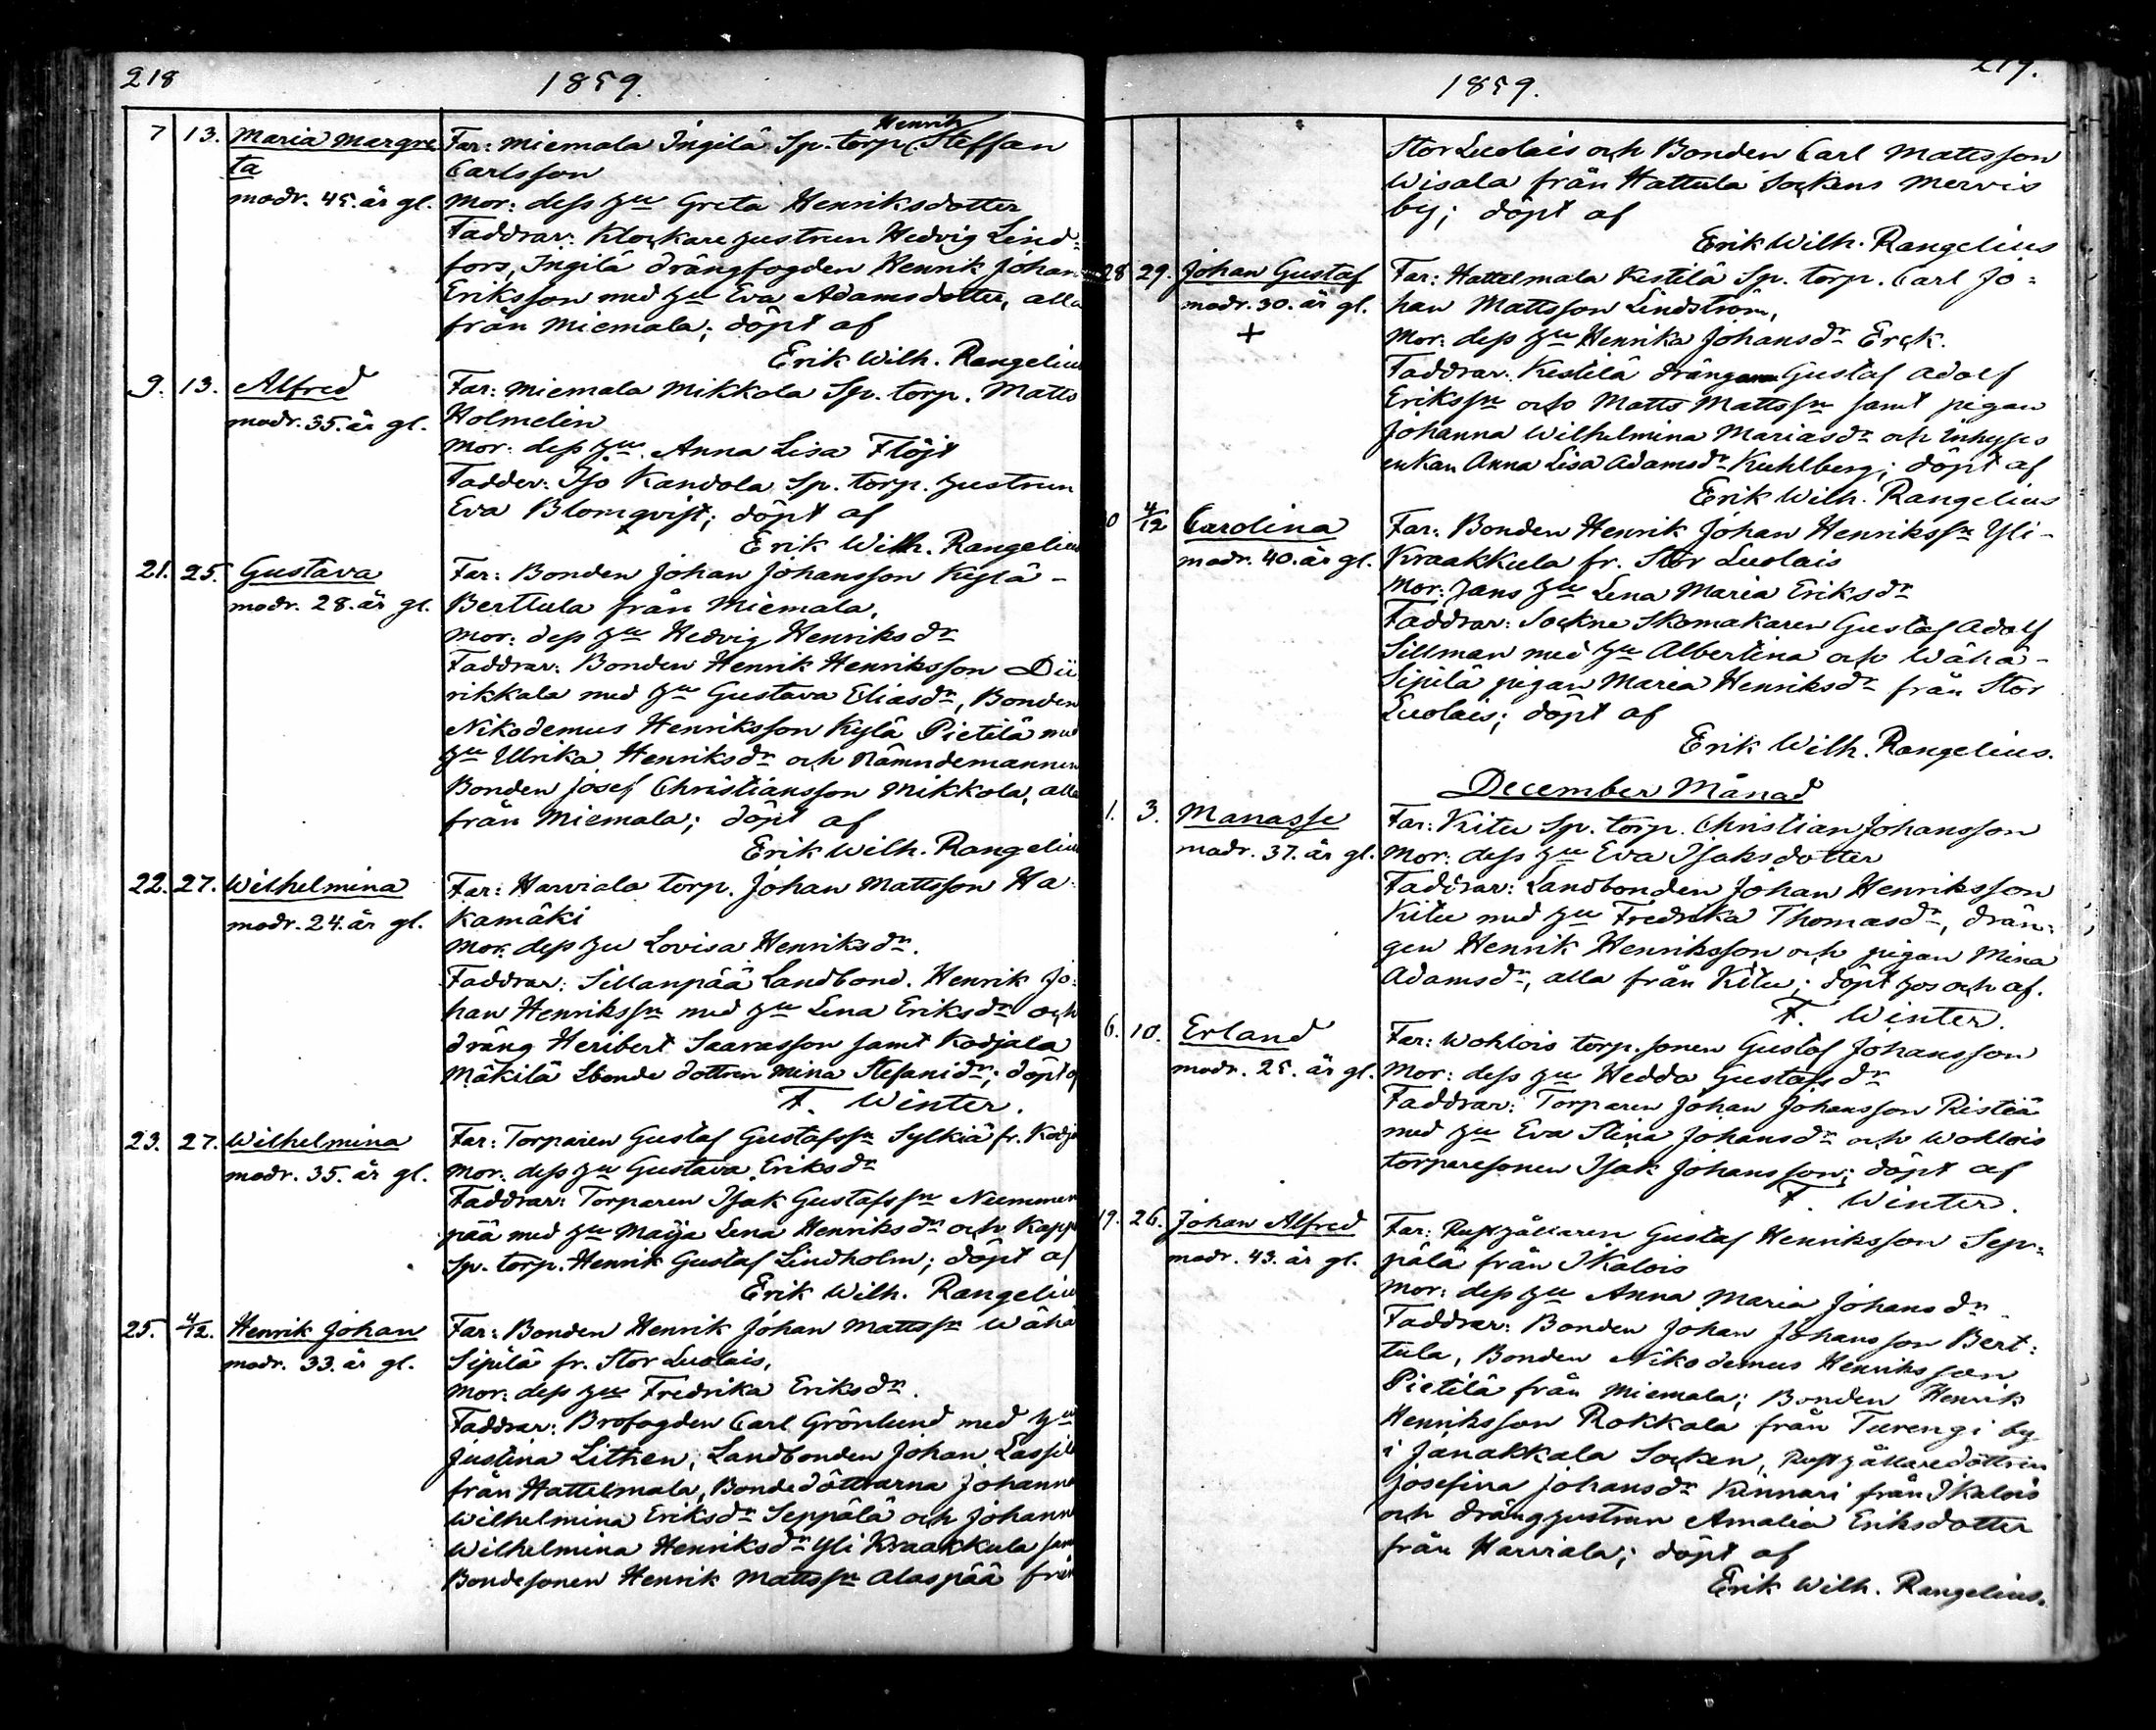 218
1859.
7 13. Maria Margre
ta
modr. 45. år gl.
Henrik
Far: Miemala Ingilä Sp. torp. Steffan
Carlsson
Mor: dess hu Greta Henriksdotter
Faddrar: Klockarehustrun Hedvig Lind-
fors, Ingilä drängfogden Henrik Johan
Eriksson med hu Eva Adamsdotter, alla
från Miemala; döpt af
Erik Wilh. Rangelius
9. 13. Alfred
modr. 35. år gl.
Far: Miemala Mikkola Sp. torp. Matts
Holmelin
Mor: dess hu. Anna Lisa Flöjt
Fadder: Iso Kandola Sp. torp. hustrun
Eva Blomqvist; döpt af
Erik Wilh. Rangelius
21. 25. Gustava
modr. 28. år gl.
Far: Bonden Johan Johansson Kylä-
Berttula från Miemala,
Mor: dess hu Hedvig Henriksdr
Faddrar: Bonden Henrik Henriksson Dii
rikkala med hu Gustava Eliasdr, Bonden
Nikodemus Henriksson Kylä Pietilä med
hu Ulrika Henriksdr och Nämndemannen
Bonden Josef Christiansson Mikkola, alla
från Miemala; döpt af
Erik Wilh. Rangelius
22. 27. Wilhelmina
modr. 24. år gl.
Far: Harviala torp. Johan Mattsson Ha-
kamäki
Mor: dess hu Lovisa Henriksdr.
Faddrar: Sillanpää Landbond. Henrik Jo-
han Henrikssn med hu Lena Eriksdr och
dräng Heribert Saarasson samt Kodjala
Mäkilä Lbonde dottren Mina Stefanidr; döpt af
F. Winter.
23. 27. Wilhelmina
modr. 35. år gl.
Far: Torparen Gustaf Gustafssn Sylkiä fr. Kodj
Mor: dess hu Gustava Eriksdr
Faddrar: Torparen Isak Gustafssn Nummen
pää med hu Maija Lena Henriksdr och Kapp
Sp. torp. Henrik Gustaf Lindholm; döpt af
Erik Wilh. Rangelius
25. 4/12. Henrik Johan
modr. 33. år gl.
Far: Bonden Henrik Johan Mattssn Wähä
Sipilä fr. Stor Luolais,
Mor: dess hu Fredrika Eriksdr.
Faddrar: Brofogden Carl Grönlund med hu
Justina Lithen, Landbonden Johan Lassil
från Hattelmala, Bondedöttrarna Johanna
Wilhelmina Eriksdr Seppälä och Johann
Wilhelmina Henriksdr Yli Kraakkula sam
Bondesonen Henrik Mattssn Alaspää från
219.
1859.
Stor Luolais och Bonden Carl Mattsson
Wisala från Hattula Sockens Mervis
by; döpt af
Erik Wilh. Rangelius
28 29. Johan Gustaf
modr. 30. år gl.
+
Far: Hattelmala Kestilä Sp. torp. Carl Jo-
han Mattsson Lindström,
Mor: dess hu Henrika Johansdr Erck.
Faddrar: Kestilä drängarne Gustaf Adolf
Erikssn och Matts Mattssn samt pigan
Johanna Wilhelmina Mariasdr och Inhyses
enkan Anna Lisa Adamsdr Kuhlberg; döpt af
Erik Wilh. Rangelius
0 4/12 Carolina
modr. 40. år gl.
Far: Bonden Henrik Johan Henrikssn Yli-
Kraakkula fr. Stor Luolais
Mor: hans hu Lena Maria Eriksdr
Faddrar: Sockne Skomakaren Gustaf Adolf
Sillman med hu Albertina och Wähä-
Sipilä pigan Maria Henriksdr från Stor
Luolais; döpt af
Erik Wilh. Rangelius.
December Månad
1. 3. Manasse
modr. 37. år gl.
Far: Kitu Sp. torp. Christian Johansson
Mor: dess hu Eva Isaksdotter
Faddrar: Landbonden Johan Henriksson
Kitu med hu Fredrika Thomasdr, drän-
gen Henrik Henriksson och pigan Mina
Adamsdr, alla från Kitu; döpt hos och af.
F. Winter.
6. 10. Erland
modr. 25. år gl.
Far: Wohlois torp. sonen Gustaf Johansson
Mor: dess hu Hedda Gustafsdr
Faddrar: Torparen Johan Johansson Ristiä
med hu Eva Stina Johansdr och Wohlois
torparesonen Isak Johansson; döpt af
F. Winter.
19. 26. Johan Alfred
modr. 43. år gl.
Far: Rusthållaren Gustaf Henriksson Sep-
pälä från Ikalois
Mor: dess hu Anna Maria Johansdr
Faddrar: Bonden Johan Johansson Bert-
tula, Bonden Nikodemus Henriksson
Pietilä från Miemala; Bonden Henrik
Henriksson Rokkala från Turengi by
i Janakkala Socken, Rusthållaredöttren
Josefina Johansdr Kinnari från Ikalois
och dränghustrun Amalia Eriksdotter
från Harviala; döpt af
Erik Wilh. Rangelius.